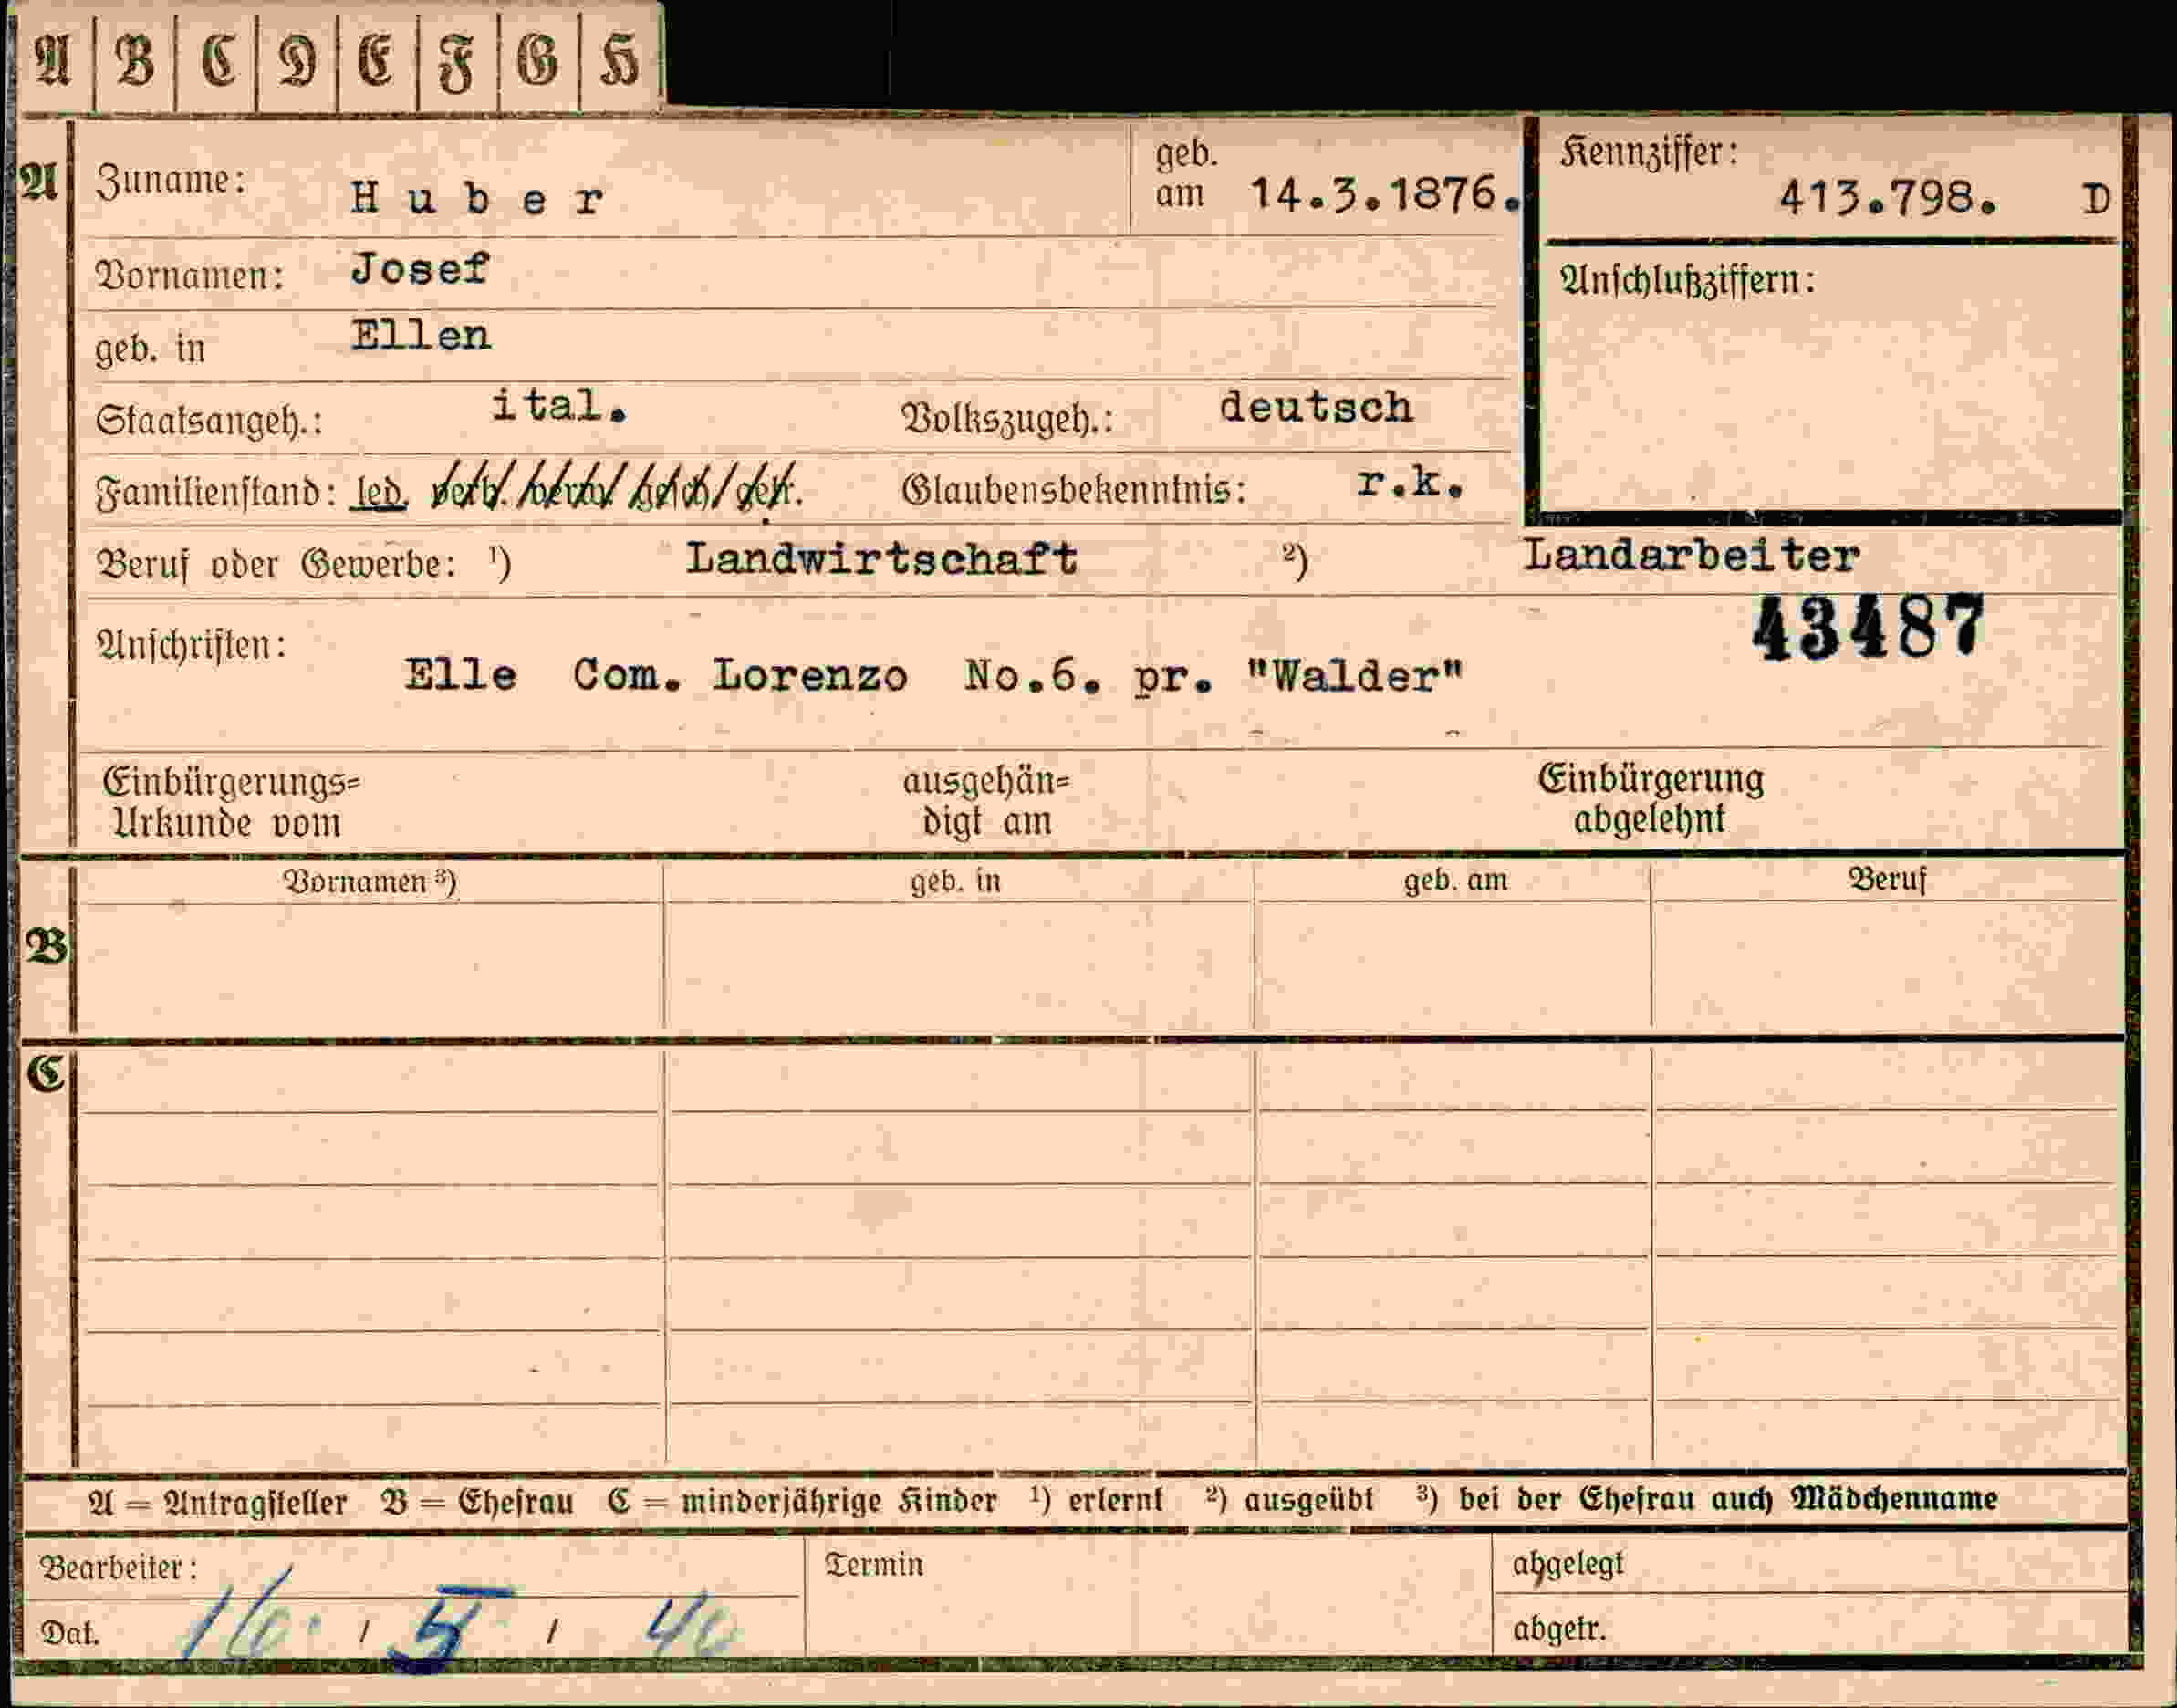 A B C D E F G H
A Zuname: Huber geb. am 14.3.1876. Kennziffer: 413.798. D
Vornamen: Josef Anschlußziffern:
geb. in Ellen
Staatsangeh.: ital. Volkszugeh.: deutsch
Familienstand: led. verh. verw. gesch. getr. Glaubensbekenntnis: r.k.
Beruf oder Gewerbe: ¹) Landwirtschaft ²) Landarbeiter
43487
Anschriften: Elle Com. Lorenzo No.6. pr. "Walder"
Einbürgerungs= ausgehän= Einbürgerung
Urkunde vom digt am abgelehnt
Vornamen ³) geb. in geb. am Beruf
B
C
A = Antragsteller B = Ehefrau C = minderjährige Kinder ¹) erlernt ²) ausgeübt ³) bei der Ehefrau auch Mädchenname
Bearbeiter: Termin abgelegt
Dat. 16. / 5 / 40 abgetr.